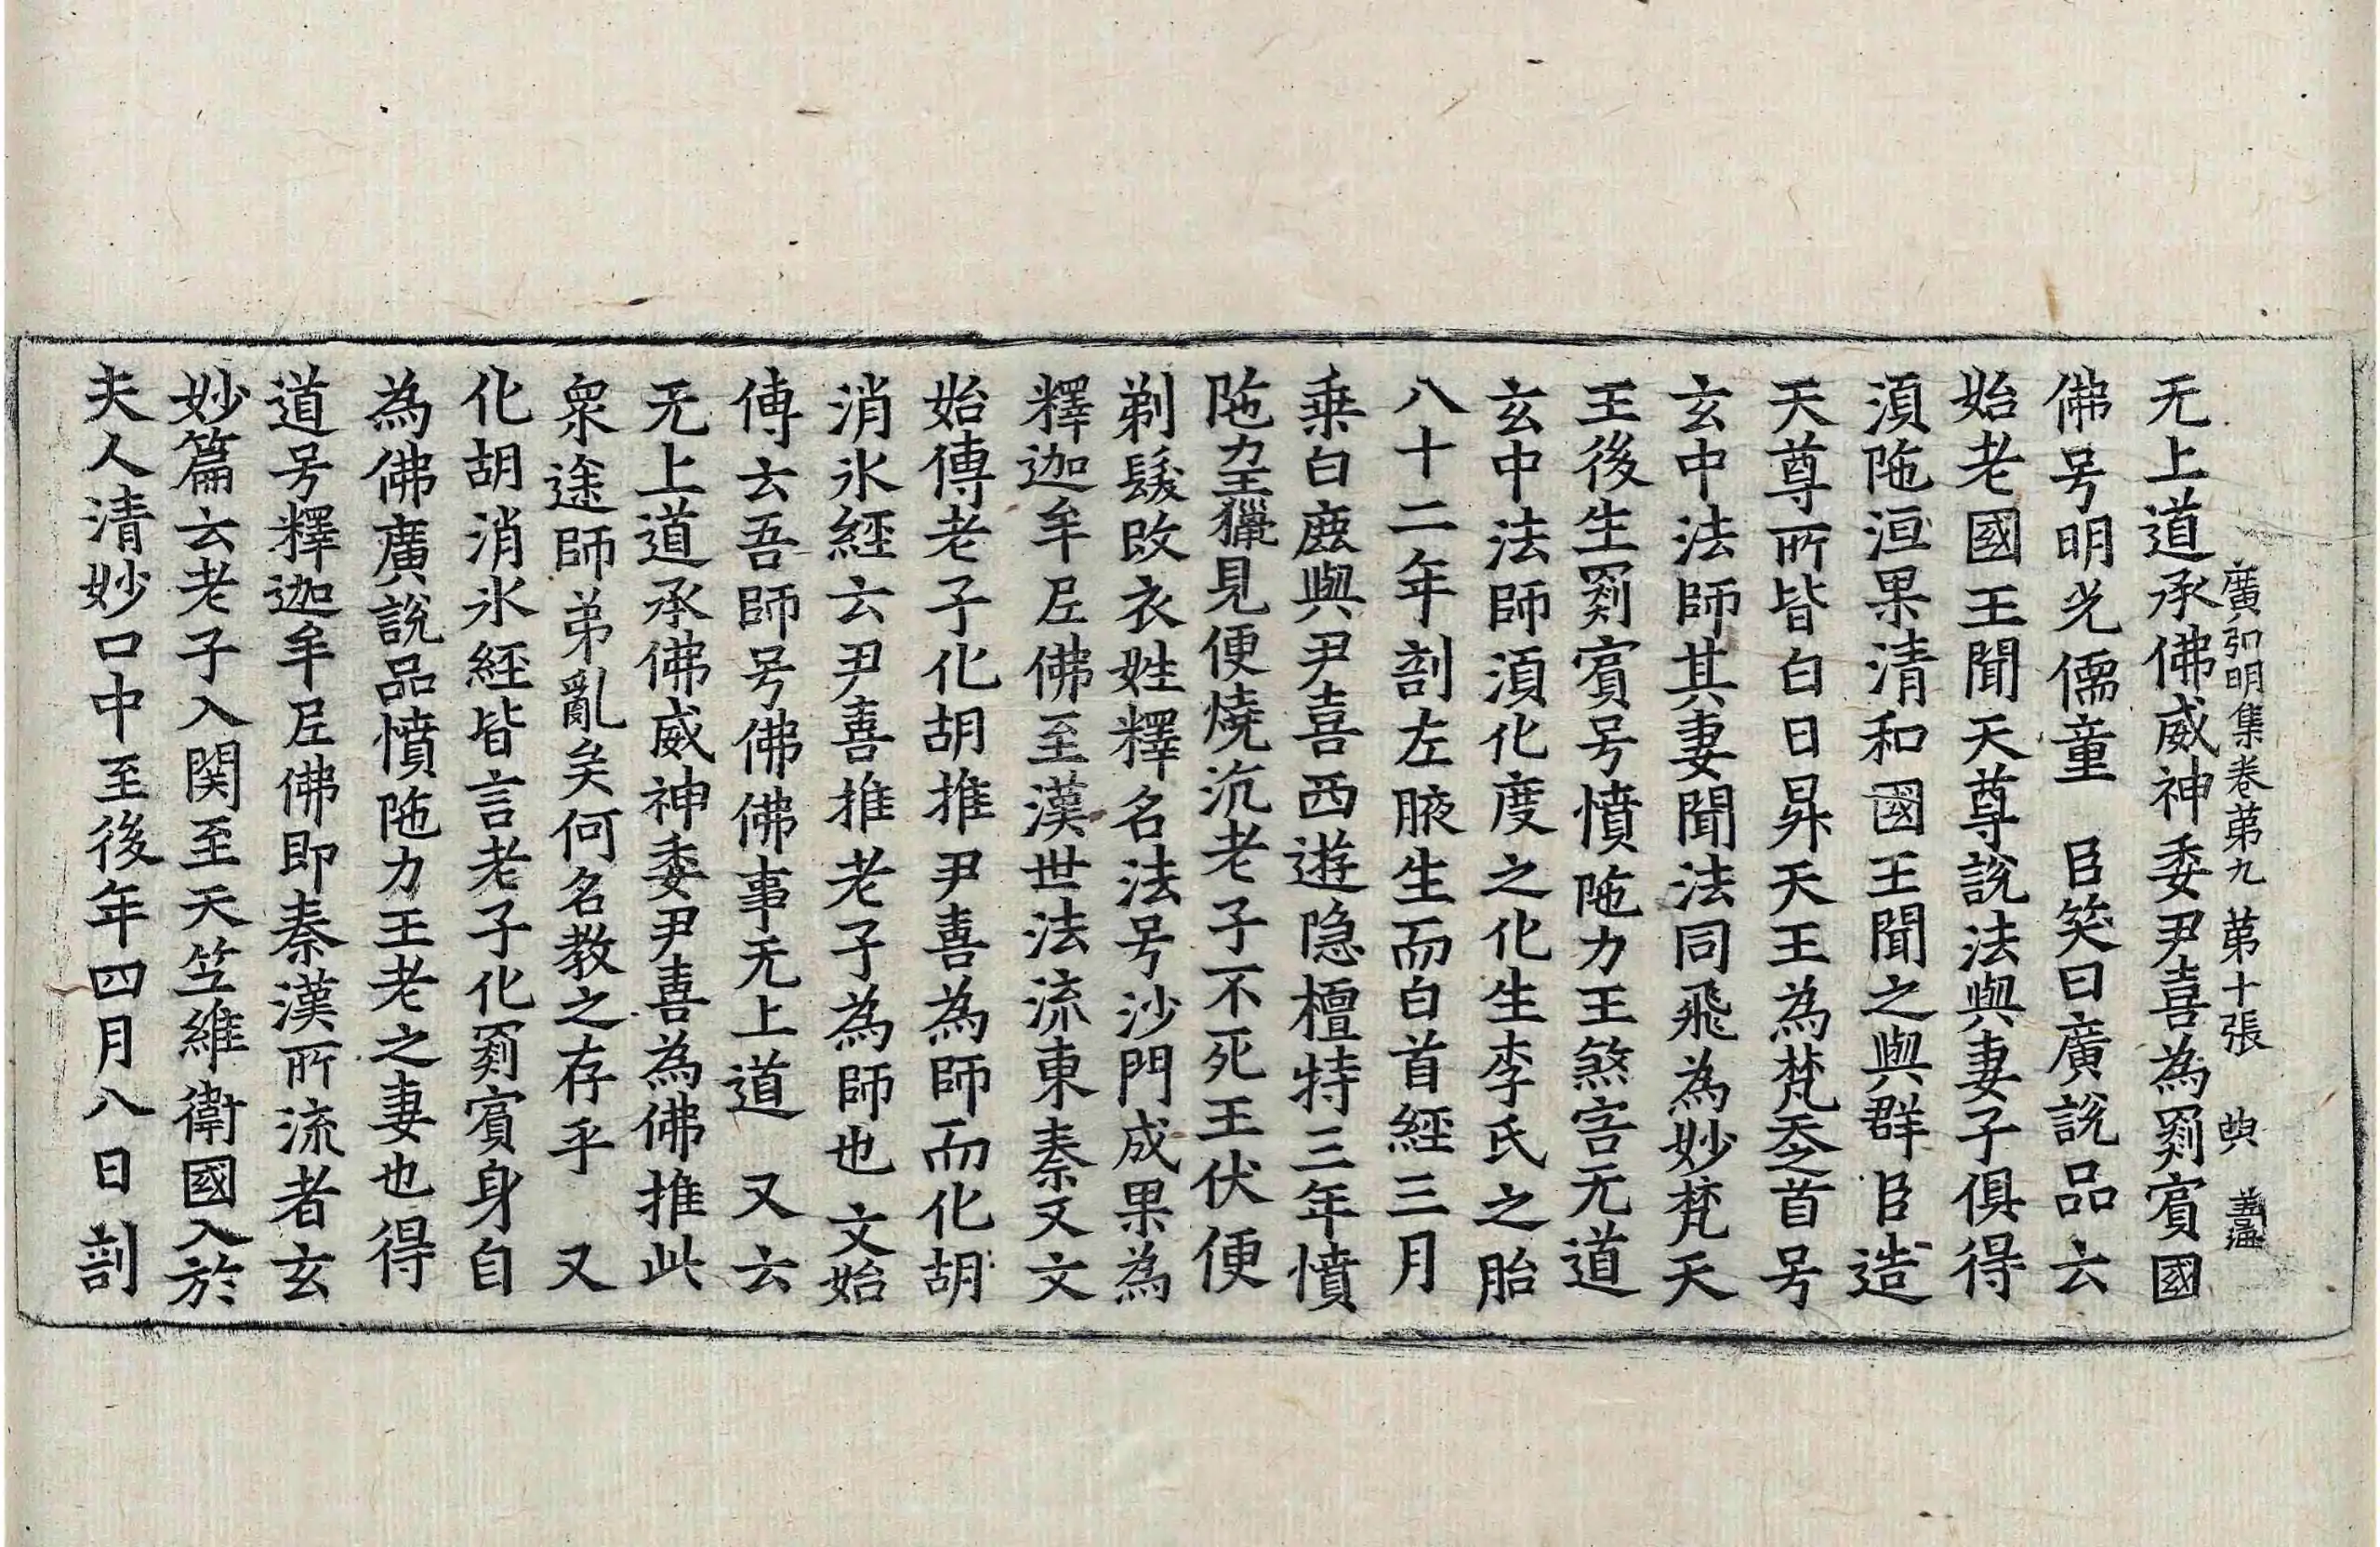 无上道承佛威神委尹喜為罽賓國
廣弘明集卷第九 第十張 典
佛号明光儒童 臣笑曰廣說品云
始老國王聞天尊說法與妻子俱得
湏陁洹果清和國王聞之與群臣造
天尊所皆白日昇天王為梵天之首号
玄中法師其妻聞法同飛為妙梵天
王後生罽賓号憤陁力王煞害无道
玄中法師湏化度之化生李氏之胎
八十二年剖左腋生而白首經三月
乗白鹿與尹喜西遊隠檀特三年憤
陁力王獵見便燒沉老子不死王伏便
剃髮改衣姓釋名法号沙門成果為
釋迦牟尼佛至漢世法流東秦又文
始傳老子化胡推尹喜為師而化胡
消氷經云尹喜推老子為師也 文始
傳云吾師号佛佛事无上道 又云
无上道承佛威神委尹喜為佛推此
衆途師弟亂矣何名教之存乎 又
化胡消氷經皆言老子化罽賓身自
為佛廣說品憤陁力王老之妻也得
道号釋迦牟尼佛即秦漢所流者玄
妙篇云老子入関至天竺維衛國入於
夫人清妙口中至後年四月八日剖